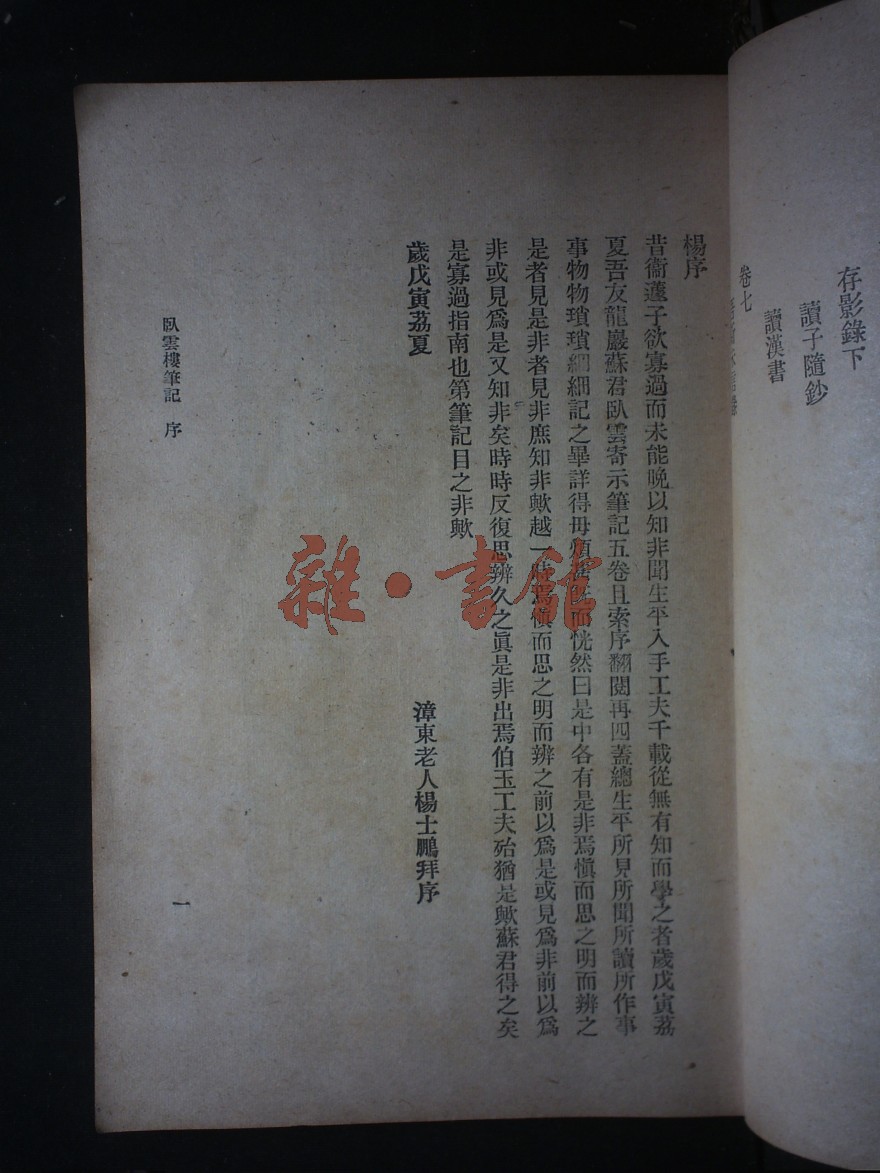 存影錄下
讀子隨鈔
讀漢書
卷七
楊序
昔衞蘧子欲寡過而未能晚以知非聞生平入手工夫千載從無有知而學之者歲戊寅荔
夏吾友龍巖蘇君臥雲寄示筆記五卷且索序翻閱再四蓋總生平所見所聞所讀所作事
事物物瑣瑣細細記之畢詳得毋煩 既而恍然曰是中各有是非焉愼而思之明而辨之
是者見是非者見非庶知非歟越一時焉愼而思之明而辨之前以爲是或見爲非前以爲
非或見爲是又知非矣時時反復思辨久之眞是非出焉伯玉工夫殆猶是歟蘇君得之矣
是寡過指南也第筆記目之非歟
歲戊寅荔夏
漳東老人楊士鵬拜序
臥雲樓筆記 序
一
雜·書館